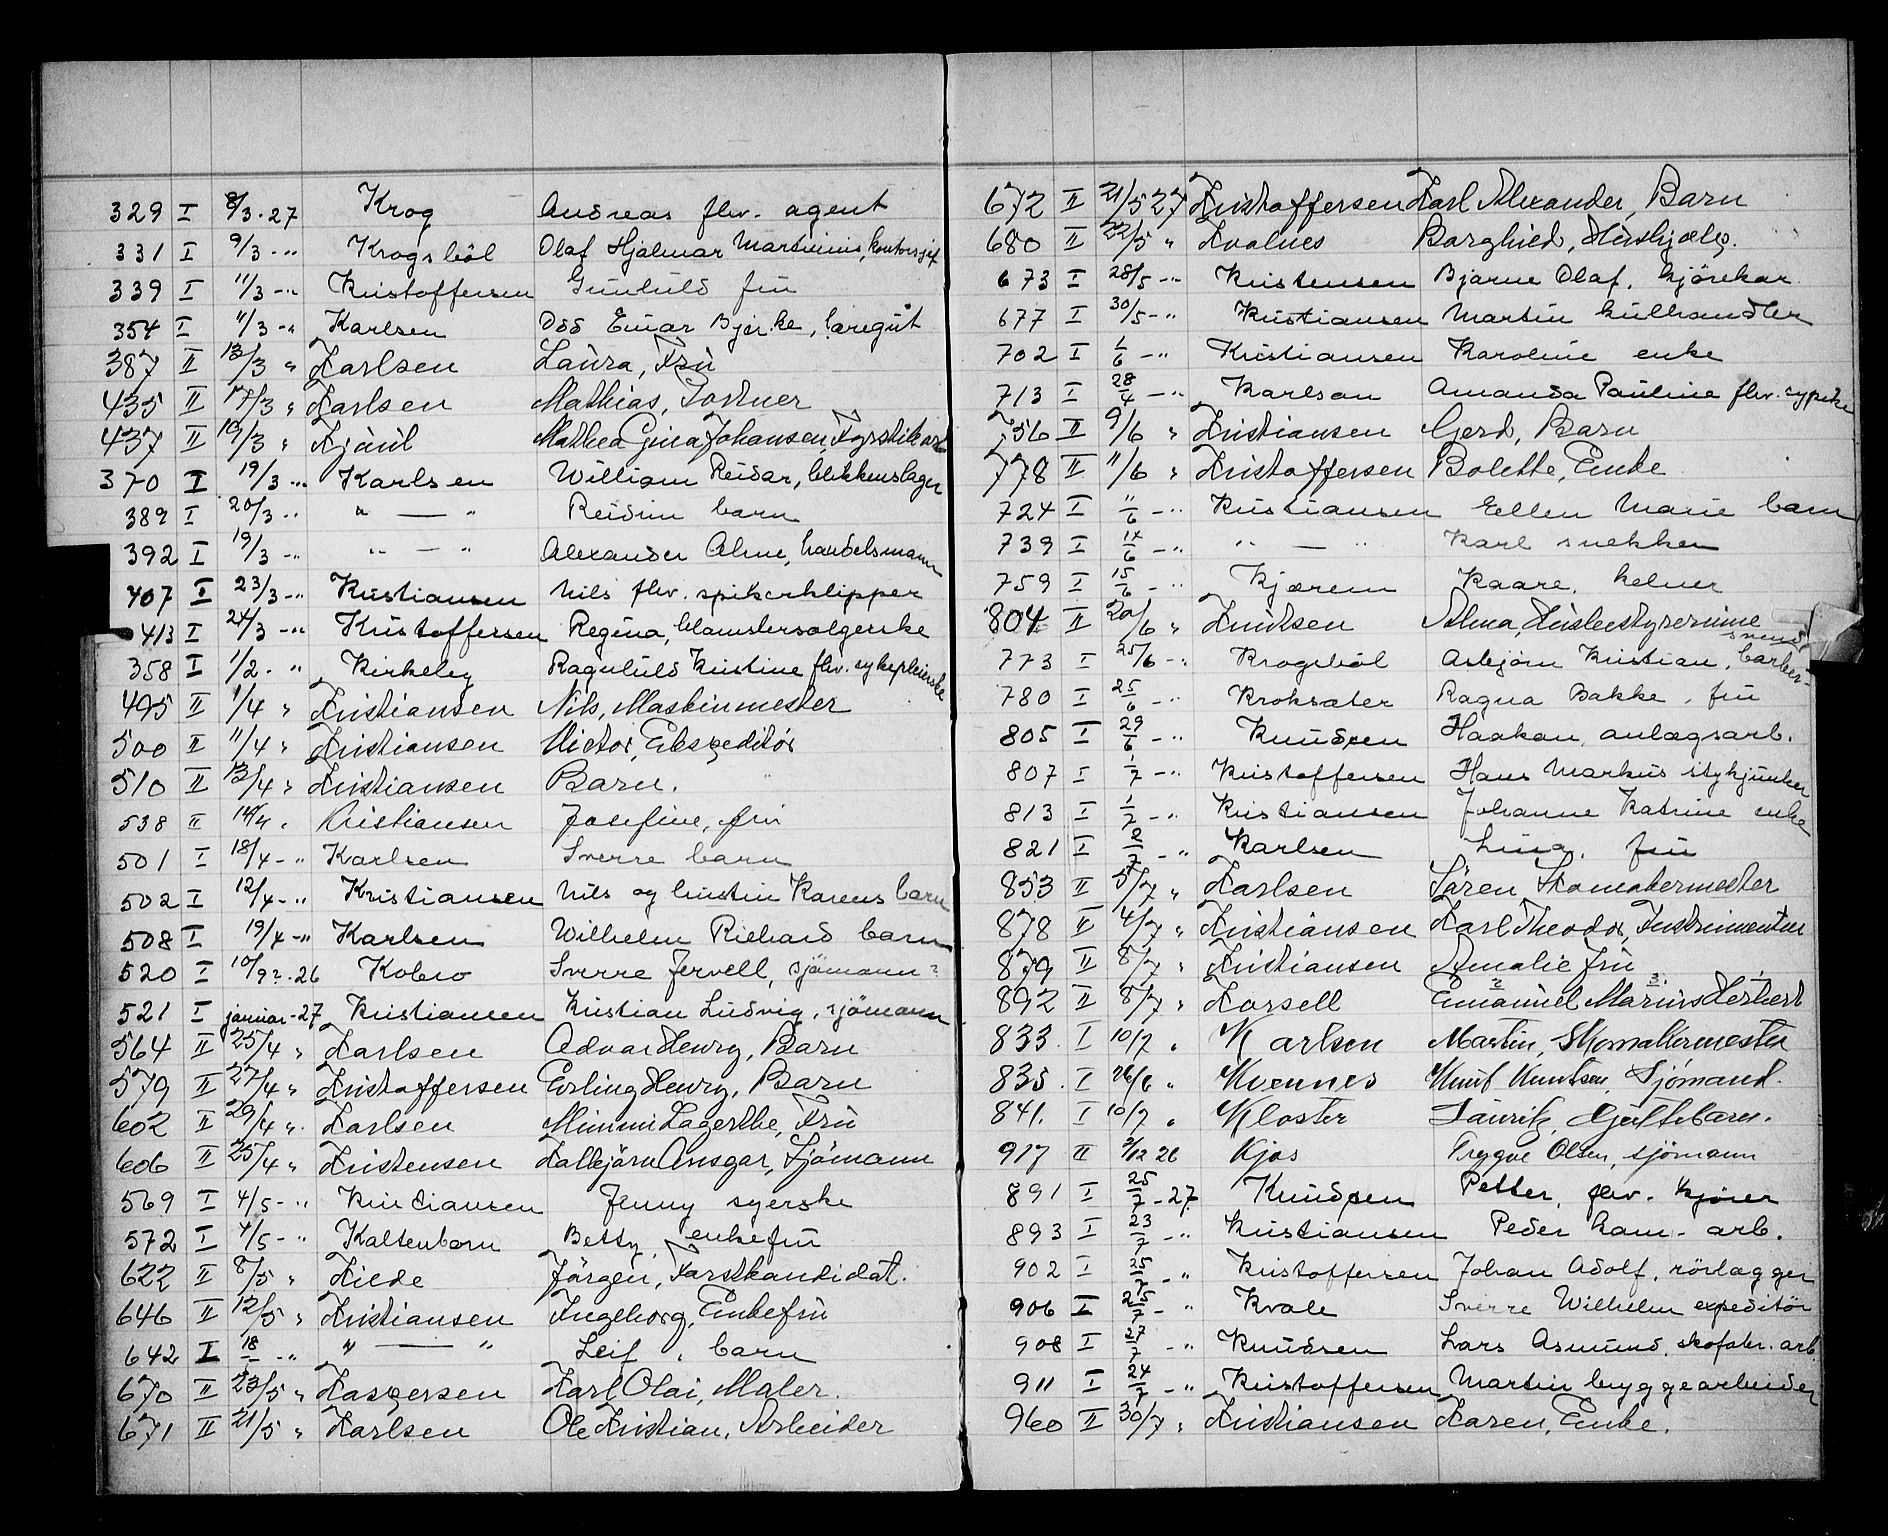 329 I 8/3.27 Krog Andreas fhv. agent
331 I 9/3 - " Krogsböl Olaf Hjalmar Martinius, kontorsjef
339 I 11/3 - " Kristoffersen Gunhild fru
354 I 11/3 - " Karlsen Odd Einar Bjerke, læregut
387 II 13/3 " Karlsen Laura, Fru
435 II 17/3 " Karlsen Mathias, Portner
437 II 19/3 " Kjaul Mathea Gina Johansen, Fyrstikarb
370 I 19/3 - " Karlsen William Reidar, blikkenslager
389 I 20/3 - " " — " Reidun barn
392 I 19/3 - " " — " Alexander Alme, handelsmann
407 I 23/3 - " Kristiansen Nils fhv. spikerklipper
413 I 24/3 - " Kristoffersen Regina, blomstersælgerske
358 I 1/2 - " Kirkeby Ragnhild Kristine fhv. sykepleierske
495 II 1/4 " Kristiansen Nils, Maskinmester
500 II 11/4 " Kristiansen Victor, Ekspeditör
510 II 13/4 " Kristiansen Barn.
538 II 14/4 " Kristiansen Josefine, fru
501 I 18/4 - " Karlsen Sverre barn
502 I 12/4 - " Kristiansen Nils og hustru Karens barn
508 I 19/4 - " Karlsen Wilhelm Richard barn
520 I 10/9?.26 Kobro Sverre Jervell, sjömann?
521 I januar - 27 Kristiansen Kristian Ludvig, sjömann
564 II 25/4 " Karlsen Advar Henry, Barn
579 II 27/4 " Kristoffersen Erling Henry, Barn
602 II 29/4 " Karlsen Mimmi Lagerthe, Fru
606 II 25/4 " Kristensen Kolbjörn Ansgar, Sjömann
569 I 4/5 - " Kristiansen Jenny syerske
572 I 4/5 - " Kaltenborn Betty, enkefru
622 II 8/5 " Kiede Jörgen, Forstkandidat.
646 II 12/5 " Kristiansen Ingeborg, Enkefru
642 I 18 - " " — " Leif, barn
670 II 23/5 " Kaspersen Karl Olai, Maler.
671 II 21/5 " Karlsen Ole Kristian, Arbeider
672 II 21/5 27 Kristoffersen Karl Alexander, Barn
680 II 22/5 " Kvalnes Borghied, Hushjælp.
673 I 28/5 - " Kristensen Bjarne Olaf, kjörekar
677 I 30/5 - " Kristiansen Martin kulhandler
702 I 1/6 - " Kristiansen Karoline enke
713 I 28/4 - " Karlson Amanda Pauline fhv. sypike
756 II 9/6 " Kristiansen Gerd, Barn
778 II 11/6 " Kristoffersen Bolette, Enke
724 I "/6 - " Kristiansen Ellen Marie barn
739 I 14/6 - " " — " Karl snekker
759 I 15/6 - " Kjærem Kaare, kelner
804 II 20/6 " Knutsen Alma, Husbestyrerinne
773 I 25/6 - " Krogsböl Asbjörn Kristian, barber- svend
780 I 25/6 - " Kroksæter Ragna Bakke, fru
805 I 29/6 - " Knudsen Haakon, anlægsarb.
807 I 1/7 - " Kristoffersen Hans Markus stykjunker
813 I 1/7 - " Kristiansen Johanne Katrine enke
821 I 2/7 - " Karlsen Lina, fru
853 II 5/7 " Karlsen Sören Skomakermester
878 II 4/7 " Kristiansen Karl Theodor, Instrumentm
879 II 8/7 " Kristiansen Amalie fru
892 II 8/7 " Korsell Emanuel Marius Herbert
833 I 10/7 " Karlsen Martin, Skomakermester
835 I 26/6 " Kvennes Knut Knutsen, Sjömand.
841. I 10/7 " Kloster Laurits, Gjuttebarn.
917 II 2/12 26 Kjos Trygve Olsen, sjömann
891 I 25/7 - 27 Knudsen Petter, fhv. kjører
893 I 23/7 - " Kristiansen Peder kom. arb.
902 I 25/7 - " Kristoffersen Johan Adolf, rörlægger
906 I 25/7 - " Kvale Sverre Wilhelm expeditör
908 I 27/7 - " Knudsen Lars Asmund, skofabr. arb
911 I 24/7 - " Kristoffersen Martin bryggearbeider
960 II 30/7 " Kristiansen Karen, Enke.